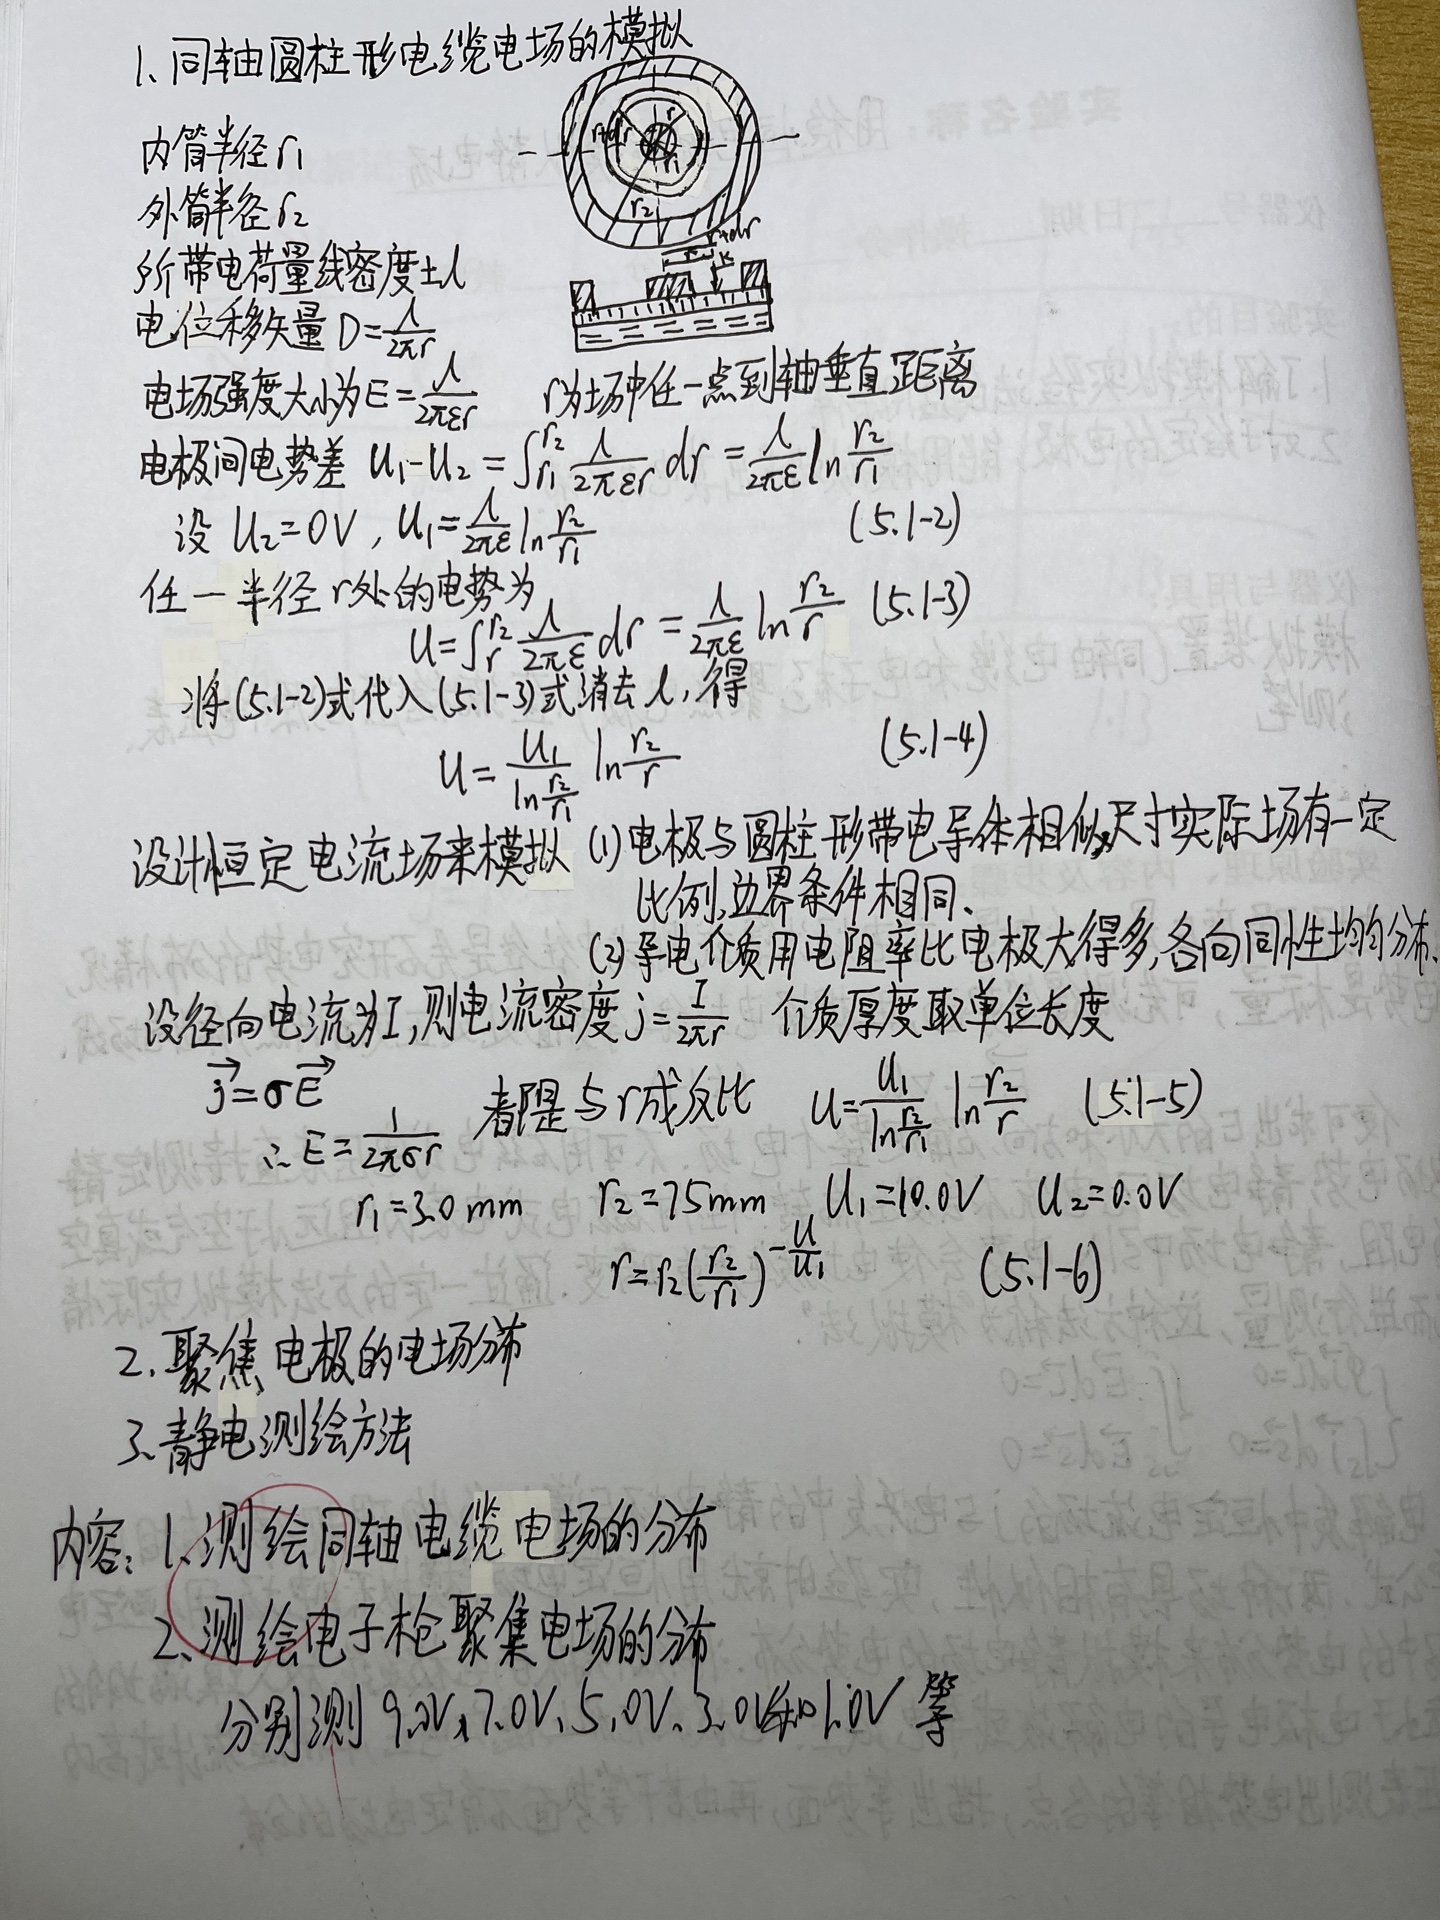 1、同轴圆柱形电缆电场的模拟
内筒半径r₁
外筒半径r₂
所带电荷量线密度±λ
电位移矢量D=λ/2πr
r+dr
r
r₁
r₂
r+dr
r
电场强度大小为E=λ/2πεr r为场中任一点到轴垂直距离
电极间电势差 U₁-U₂=∫_{r₁}^{r₂} λ/2πεr dr=λ/2πε ln r₂/r₁
设 U₂=0V,U₁=λ/2πε ln r₂/r₁ (5.1-2)
任一半径r处的电势为
U=∫_{r}^{r₂} λ/2πε dr=λ/2πε ln r₂/r (5.1-3)
将(5.1-2)式代入(5.1-3)式消去λ,得
U=U₁/ln(r₂/r₁) ln r₂/r (5.1-4)
设计恒定电流场来模拟 (1)电极与圆柱形带电导体相似,尺寸实际场有一定
比例,边界条件相同、
(2)导电介质用电阻率比电极大得多,各向同性均匀分布、
设径向电流为I,则电流密度j=I/2πr 介质厚度取单位长度
j⃗=σE⃗
都是与r成反比 U=U₁/ln(r₂/r₁) ln r₂/r (5.1-5)
∴E=1/2πσr
r₁=3.0mm r₂=75mm U₁=10.0V U₂=0.0V
r=r₂(r₂/r₁)^{-U/U₁} (5.1-6)
2、聚焦电极的电场分布
3、静电测绘方法
内容:1、测绘同轴电缆电场的分布
2、测绘电子枪聚集电场的分布
分别测9.0V、7.0V、5.0V、3.0V和1.0V等